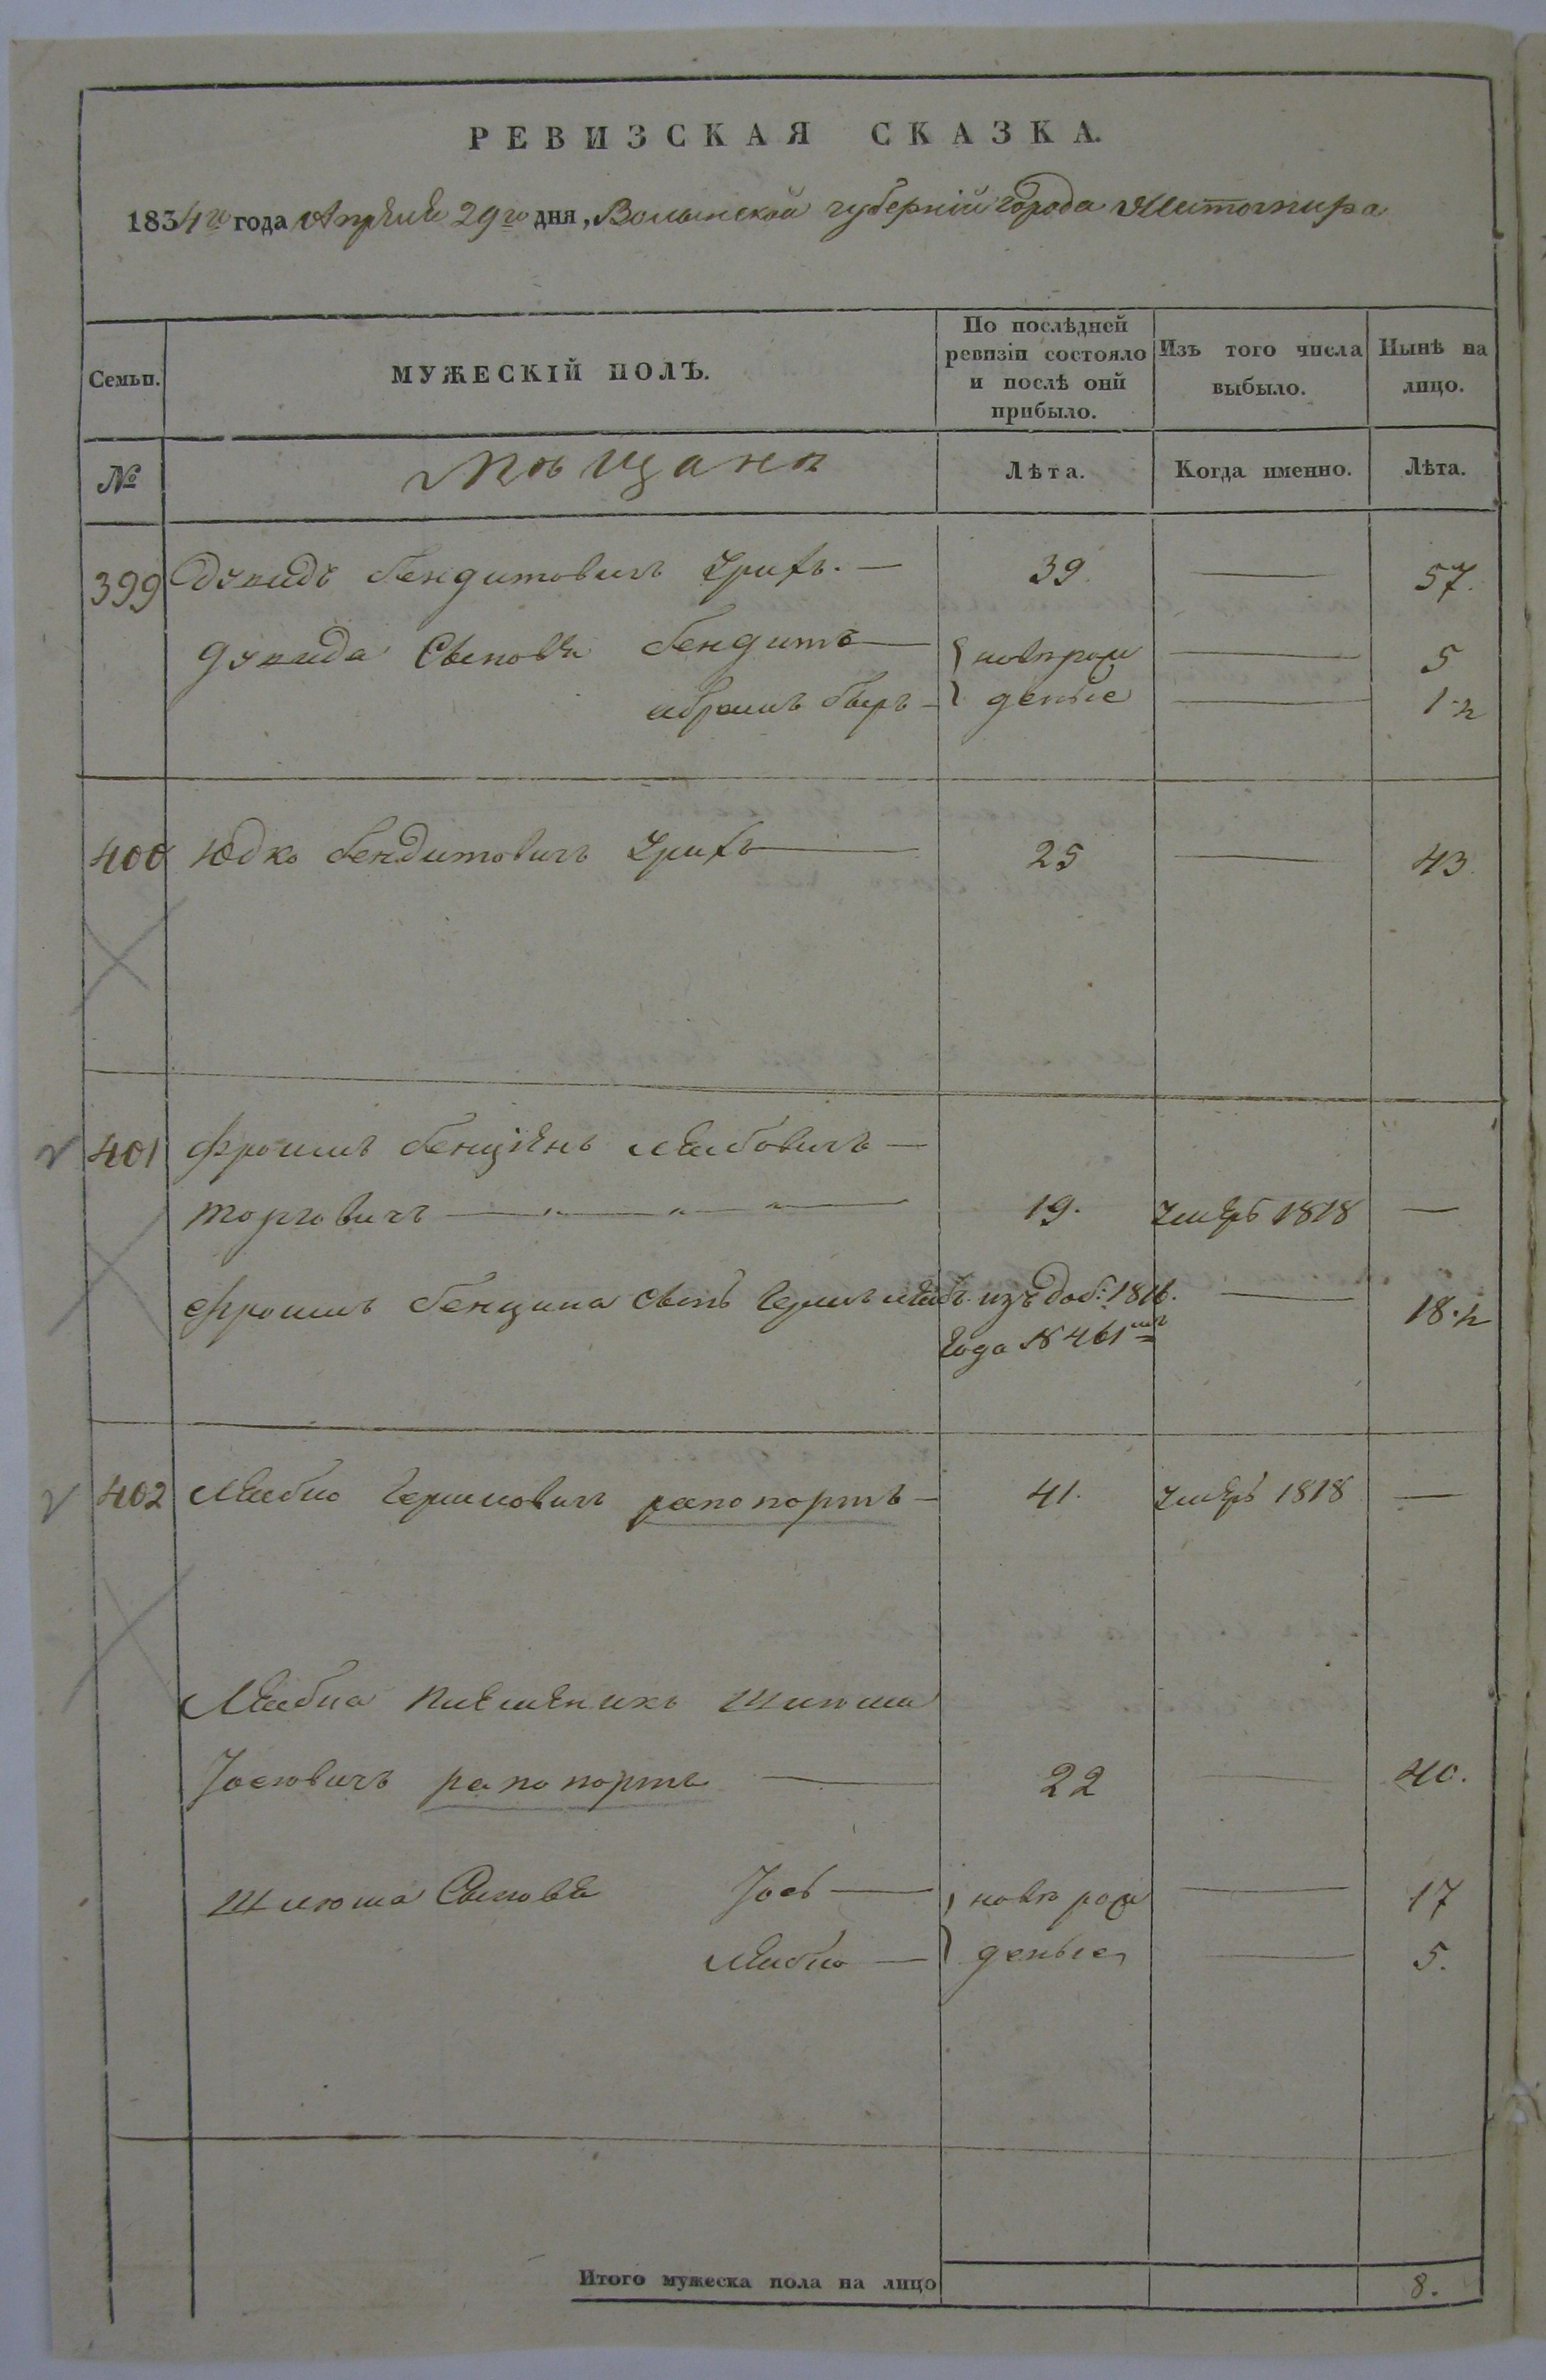 РЕВИЗСКАЯ СКАЗКА.
1834го года Апреля 29го дня, Волынской губерніи города Житомира
Семьи.
МУЖЕСКІЙ ПОЛЪ.
По послѣдней ревизіи состояло и послѣ оной прибыло.
Изъ того числа выбыло.
Нынѣ на лицо.
№
Мѣщане
Лѣта.
Когда именно.
Лѣта.
399 Дувидъ Бендитовичъ — 39. — 57.
Дувида Сыновья Бендитъ — новорож — 5
Абрамъ Беръ — деные — 1.½
400 Юдко Бендитовичъ — 25 — 43.
401 Фроимъ Бенціенъ Лейбовичъ —
Торговичъ — „ — „ — „ — 19. умеръ 1818 —
Фроимъ Бенциона сынъ Гершъ Лейбъ изъ доб: 1816. — 18.½
года № 461мъ
402 Лейбио Гершковичъ рапопортъ — 41. умеръ 1818 —
Лейбиа племеникъ Шлюма
Іосіовичъ рапопортъ — 22 — 40.
Шлюма Сыновья Іось — новорож — 17
Лейбио — деные — 5.
Итого мужеска пола на лицо 8.